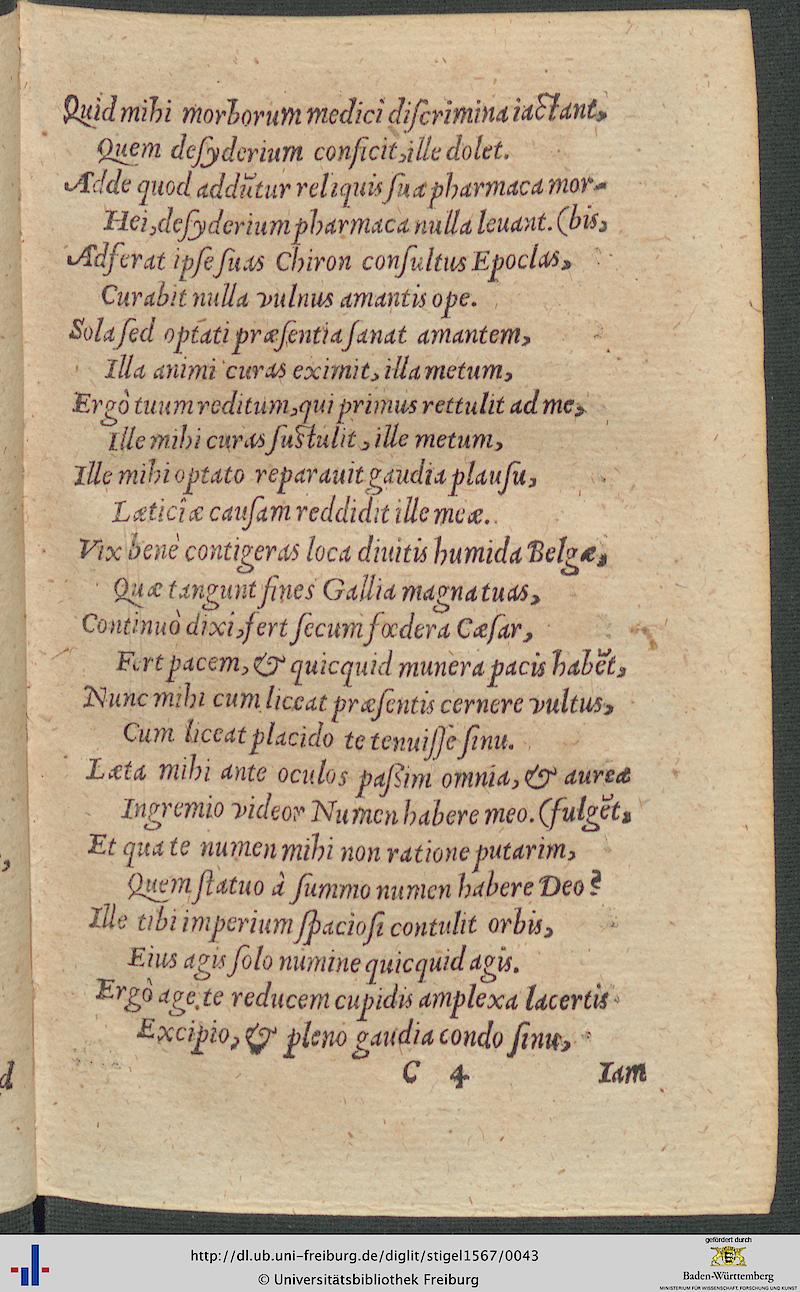 Quid mihi morborum medici diſcrimina iactant,
Quem deſyderium conficit, ille dolet.
Adde quod addūtur reliquis ſua pharmaca mor-
Hei, deſyderium pharmaca nulla leuant. (bis,
Adferat ipſe ſuas Chiron conſultus Epoclas,
Curabit nulla vulnus amantis ope.
Sola ſed optati præſentia ſanat amantem,
Illa animi curas eximit, illa metum,
Ergò tuum reditum, qui primus rettulit ad me,
Ille mihi curas ſuſtulit, ille metum,
Ille mihi optato reparauit gaudia plauſu,
Læticiæ cauſam reddidit ille meæ.
Vix benè contigeras loca diuitis humida Belgæ,
Quæ tangunt fines Gallia magna tuas,
Continuò dixi, fert ſecum fœdera Cæſar,
Fert pacem, & quicquid munera pacis habēt,
Nunc mihi cum liceat præſentis cernere vultus,
Cum liceat placido te tenuiſſe ſinu.
Læta mihi ante oculos paſsim omnia, & aurea
Ingremio videor Numen habere meo. (fulgēt,
Et qua te numen mihi non ratione putarim,
Quem ſtatuo à ſummo numen habere Deo?
Ille tibi imperium ſpacioſi contulit orbis,
Eius agis ſolo numine quicquid agis.
Ergò age, te reducem cupidis amplexa lacertis
Excipio, & pleno gaudia condo ſinu,
C 4 Iam
d
http://dl.ub.uni-freiburg.de/diglit/stigel1567/0043
© Universitätsbibliothek Freiburg
gefördert durch
Baden-Württemberg
MINISTERIUM FÜR WISSENSCHAFT, FORSCHUNG UND KUNST